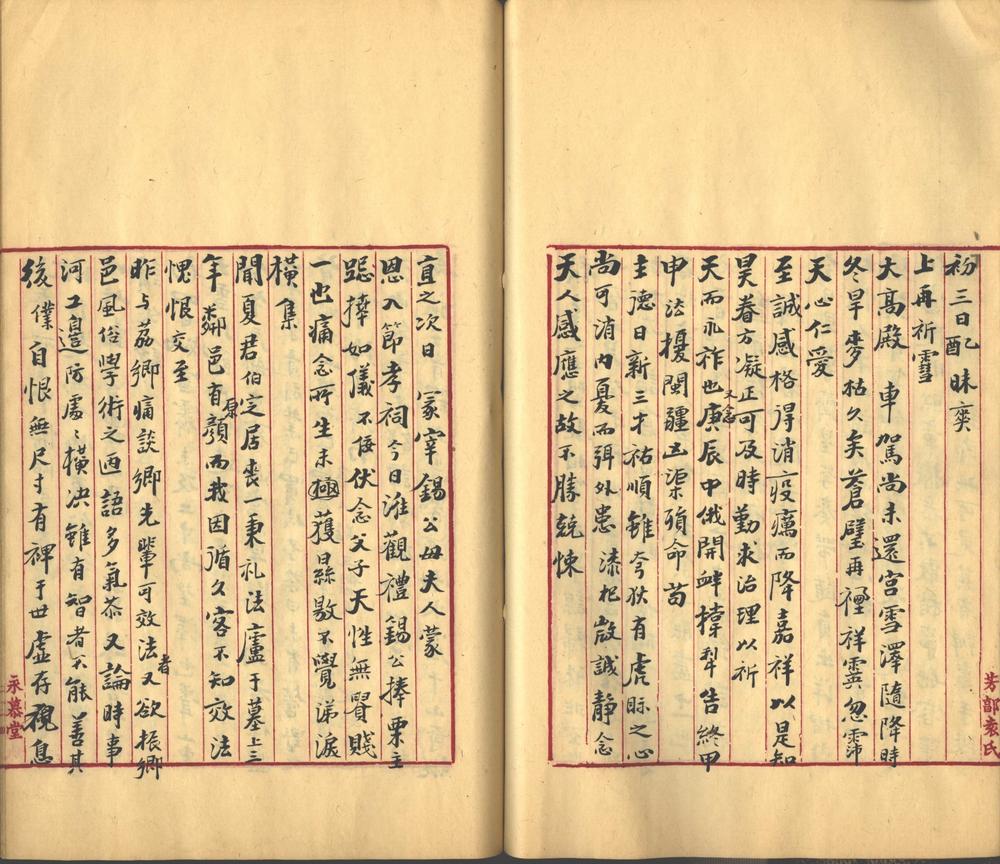 初三日配昧爽
上再祈雪
大高殿 車駕尚未還宮雪澤隨降時
冬旱麥枯久矣蒼璧再禋祥霙忽霈
天心仁愛
至誠感格得消疫癘而降嘉祥以是知
昊眷方凝正可及時勤求治理以祈
天而永祚也庚辰中俄開衅撑犁告終甲
申法擾閩疆 殞命苟
主德日新三才祐順雖夸狄有虎眎之心
尚可消内憂而弭外患漆杞啟誠静念
天人感應之故不勝兢悚
直之次日 冢宰錫公母夫人蒙
恩入節孝祠今日往觀禮錫公捧栗主
跽捧如儀不佞伏念父子天性無賢賤
一也痛念所生未獲曇歇不覺涕淚
橫集
聞夏君伯定居喪一秉礼法廬于墓上三
年鄰邑有顏原而我因循久客不知效法
愧恨交至
昨与荔卿痛談鄉先輩可效法者又欲振鄉
邑風俗學術之洒語多氣荼又論時事
河工邉防處〻橫决雖有智者不能善其
後僕自恨無尺寸有裨于世虛存視息
芳郭袁氏
永慕堂